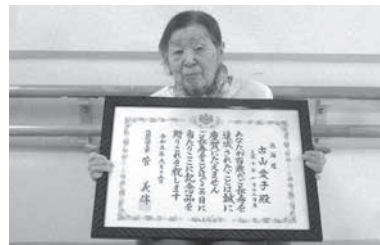 北海道
古山愛子殿
あなたが百歳のご長寿を
達成されたことは誠に
慶賀にたえません
ご長寿をことほぐ日に
当たりここに記念品を
贈りこれを祝します
令和三年九月十五日
内閣総理大臣 菅義偉